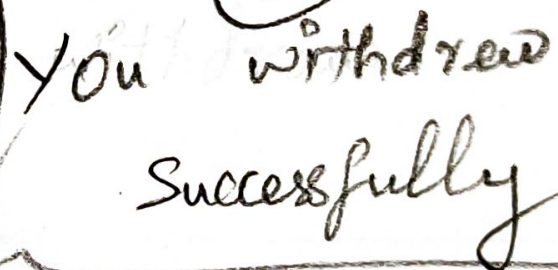 You withdrew
Successfully